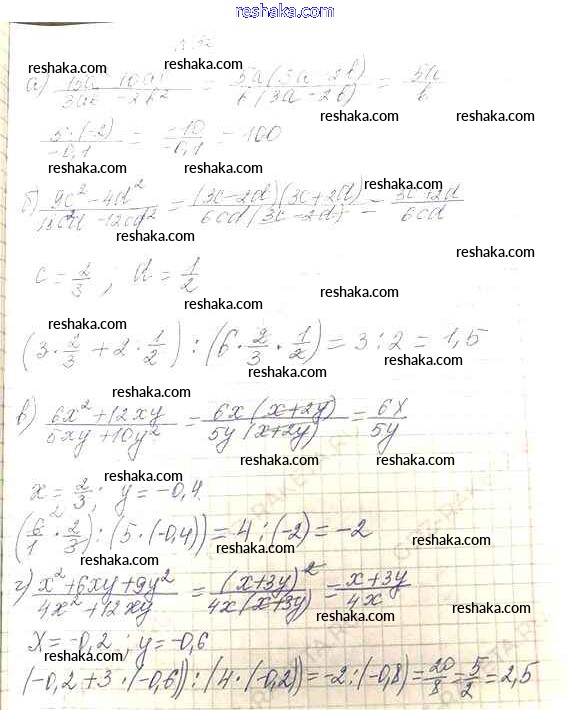 reshaka.com
№ 32
reshaka.com reshaka.com
а) (15a² - 10ab)/(3ab - 2b²) = 5a(3a - 2b)/(b(3a - 2b)) = 5a/b
reshaka.com reshaka.com
5·(-2)/(-0,1) = -10/(-0,1) = 100
reshaka.com reshaka.com
б) (9c² - 4d²)/(18c²d - 12cd²) = (3c-2d)(3c+2d)/(6cd(3c-2d)) = (3c+2d)/(6cd)
reshaka.com
c = 2/3 ; d = 1/2
reshaka.com reshaka.com
(3·2/3 + 2·1/2) : (6·2/3·1/2) = 3:2 = 1,5
reshaka.com reshaka.com
в) (6x² + 12xy)/(5xy + 10y²) = 6x(x+2y)/(5y(x+2y)) = 6x/5y
reshaka.com reshaka.com
x = 2/3 ; y = -0,4
reshaka.com
(6/1·2/3) : (5·(-0,4)) = 4:(-2) = -2
reshaka.com reshaka.com
г) (x² + 6xy + 9y²)/(4x² + 12xy) = (x+3y)²/(4x(x+3y)) = (x+3y)/4x
reshaka.com reshaka.com
x = -0,2 ; y = -0,6
reshaka.com
(-0,2 + 3·(-0,6)) : (4·(-0,2)) = -2:(-0,8) = 20/8 = 5/2 = 2,5
reshaka.com reshaka.com